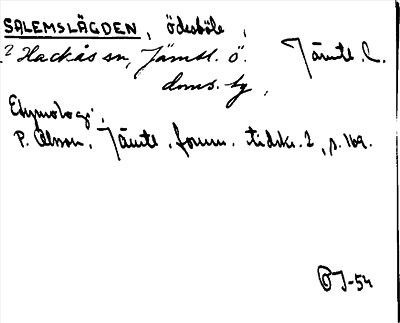 SALEMSLÄGDEN, ödesböle,
? Hackås sn, Jämtl. Ö. Jämtl. l.
doms. hg,
Etymologi:
P. Olsson, Jämtl. fornm. tidskr. 2, s. 169.
OJ-54